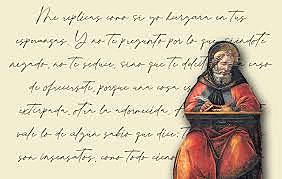 Me replicas como si yo hurgara en tus
esperanzas. Y no te pregunto por lo que, siéndote
negado, no te seduce, sino que te deleit caso
de ofrecérsete, porque una cosa es
extirpada, otra la adormecida. A
vale lo de algún sabio que dice: T
son insensatos, como todo cieno